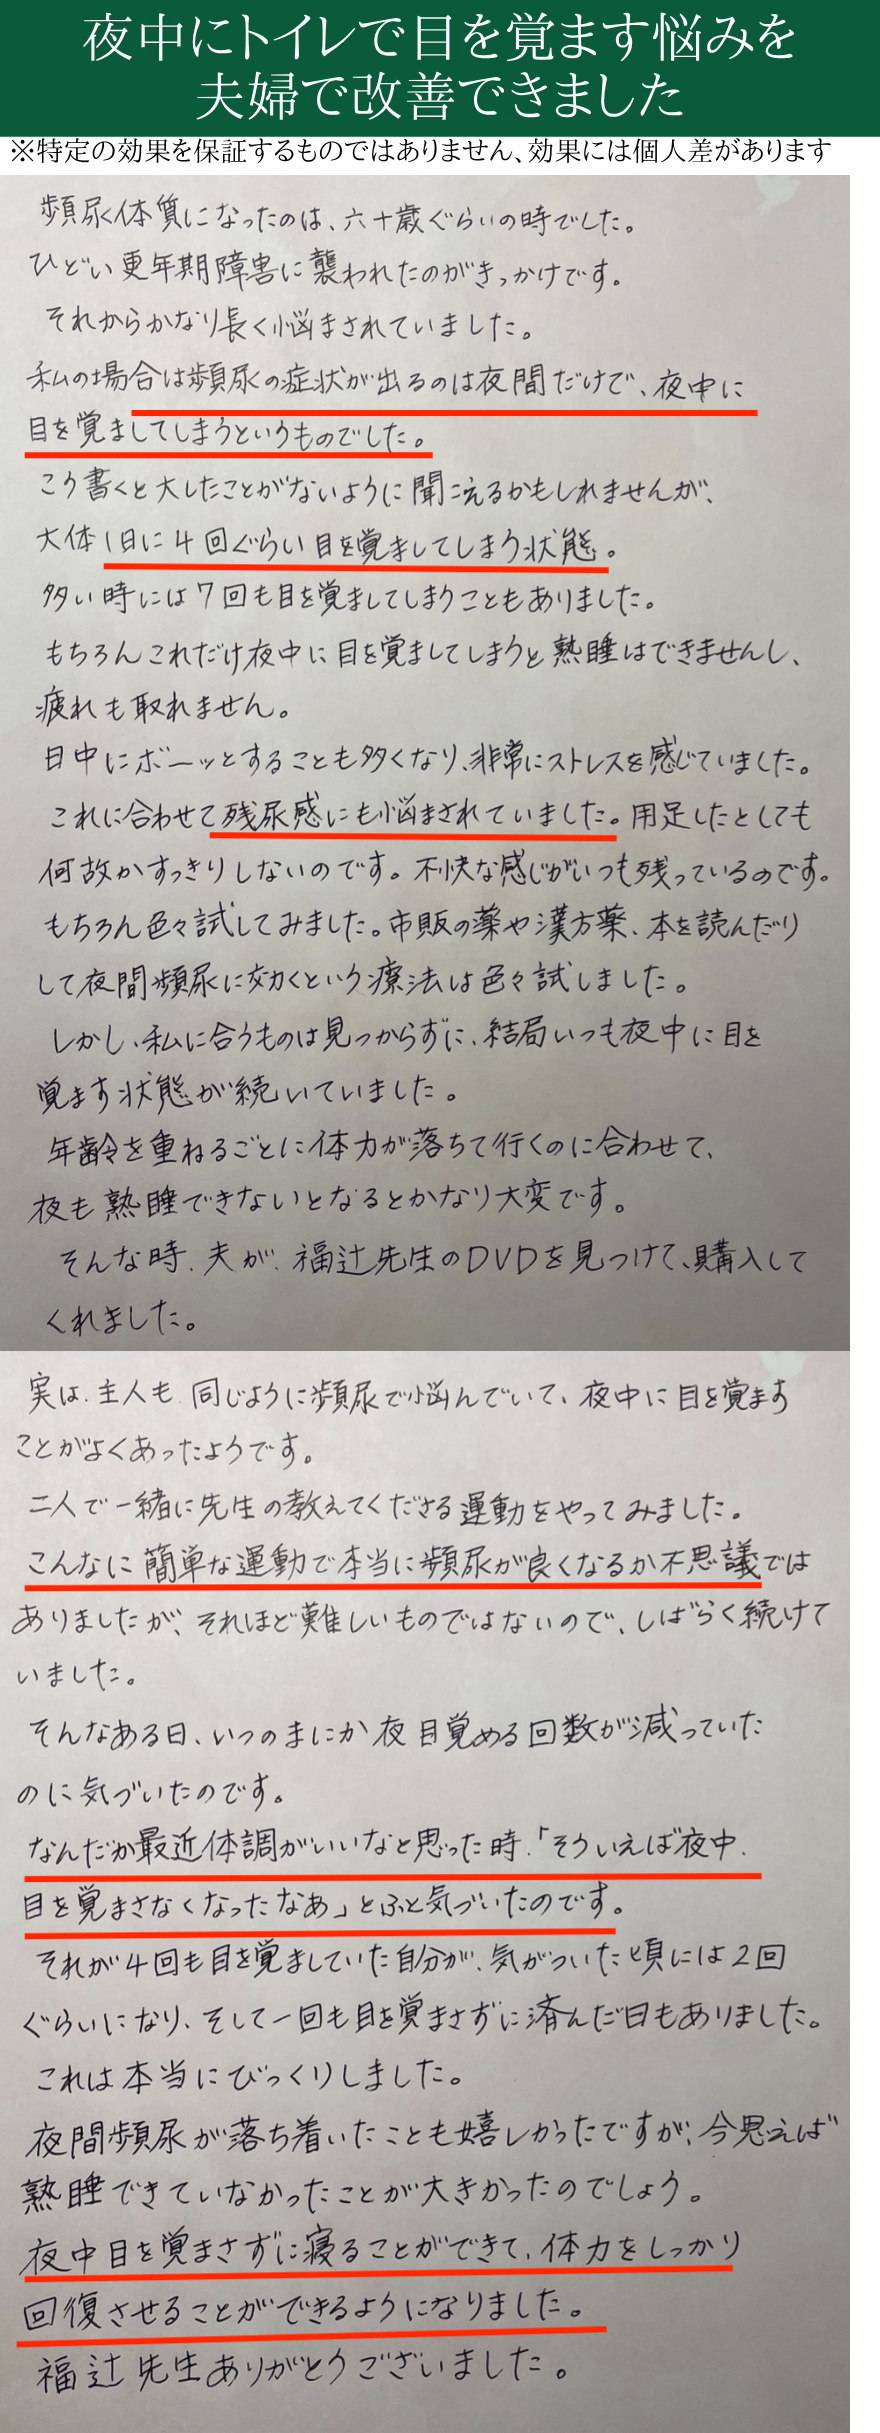 夜中にトイレで目を覚ます悩みを
夫婦で改善できました
※特定の効果を保証するものではありません、効果には個人差があります
頻尿体質になったのは、六十歳ぐらいの時でした。
ひどい更年期障害に襲われたのがきっかけです。
それからかなり長く悩まされていました。
私の場合は頻尿の症状が出るのは夜間だけで、夜中に
目を覚ましてしまうというものでした。
こう書くと大したことがないように聞こえるかもしれませんが、
大体1日に4回ぐらい目を覚ましてしまう状態。
多い時には7回も目を覚ましてしまうこともありました。
もちろんこれだけ夜中に目を覚ましてしまうと熟睡はできませんし、
疲れも取れません。
日中にボーッとすることも多くなり、非常にストレスを感じていました。
これに合わせて残尿感にも悩まされていました。用足したとしても
何故かすっきりしないのです。不快な感じがいつも残っているのです。
もちろん色々試してみました。市販の薬や漢方薬、本を読んだり
して夜間頻尿に効くという療法は色々試しました。
しかし、私に合うものは見つからずに、結局いつも夜中に目を
覚ます状態が続いていました。
年齢を重ねるごとに体力が落ちて行くのに合わせて、
夜も熟睡できないとなるとかなり大変です。
そんな時、夫が、福辻先生のDVDを見つけて、購入して
くれました。
実は、主人も、同じように頻尿で悩んでいて、夜中に目を覚ます
ことがよくあったようです。
二人で一緒に先生の教えてくださる運動をやってみました。
こんなに簡単な運動で本当に頻尿が良くなるか不思議では
ありましたが、それほど難しいものではないので、しばらく続けて
いました。
そんなある日、いつのまにか夜目覚める回数が減っていた
のに気づいたのです。
なんだか最近体調がいいなと思った時、「そういえば夜中、
目を覚まさなくなったなあ」とふと気づいたのです。
それが4回も目を覚ましていた自分が、気がついた頃には2回
ぐらいになり、そして一回も目を覚まさずに済んだ日もありました。
これは本当にびっくりしました。
夜間頻尿が落ち着いたことも嬉しかったですが、今思えば
熟睡できていなかったことが大きかったのでしょう。
夜中目を覚まさずに寝ることができて、体力をしっかり
回復させることができるようになりました。
福辻先生ありがとうございました。